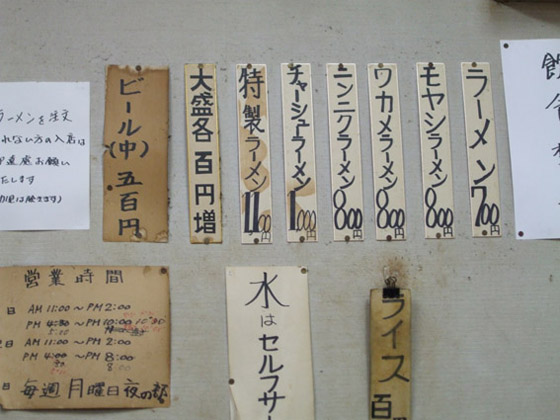 ラーメン 700円
モヤシラーメン 800円
ワカメラーメン 800円
ニンニクラーメン 800円
チャーシュラーメン 1,000円
特製ラーメン 1100円
大盛各百円増
ビール(中)五百円
ラーメンを注文
れない方の入店は
遠慮お願い
たします
営業時間
日 AM 11:00 ～ PM 2:00
PM 4:30 ～ PM 10:00
日 AM 11:00 ～ PM 2:00
PM 4:00 ～ PM 8:00
日 毎週月曜日夜の部
水はセルフサー
ライス百